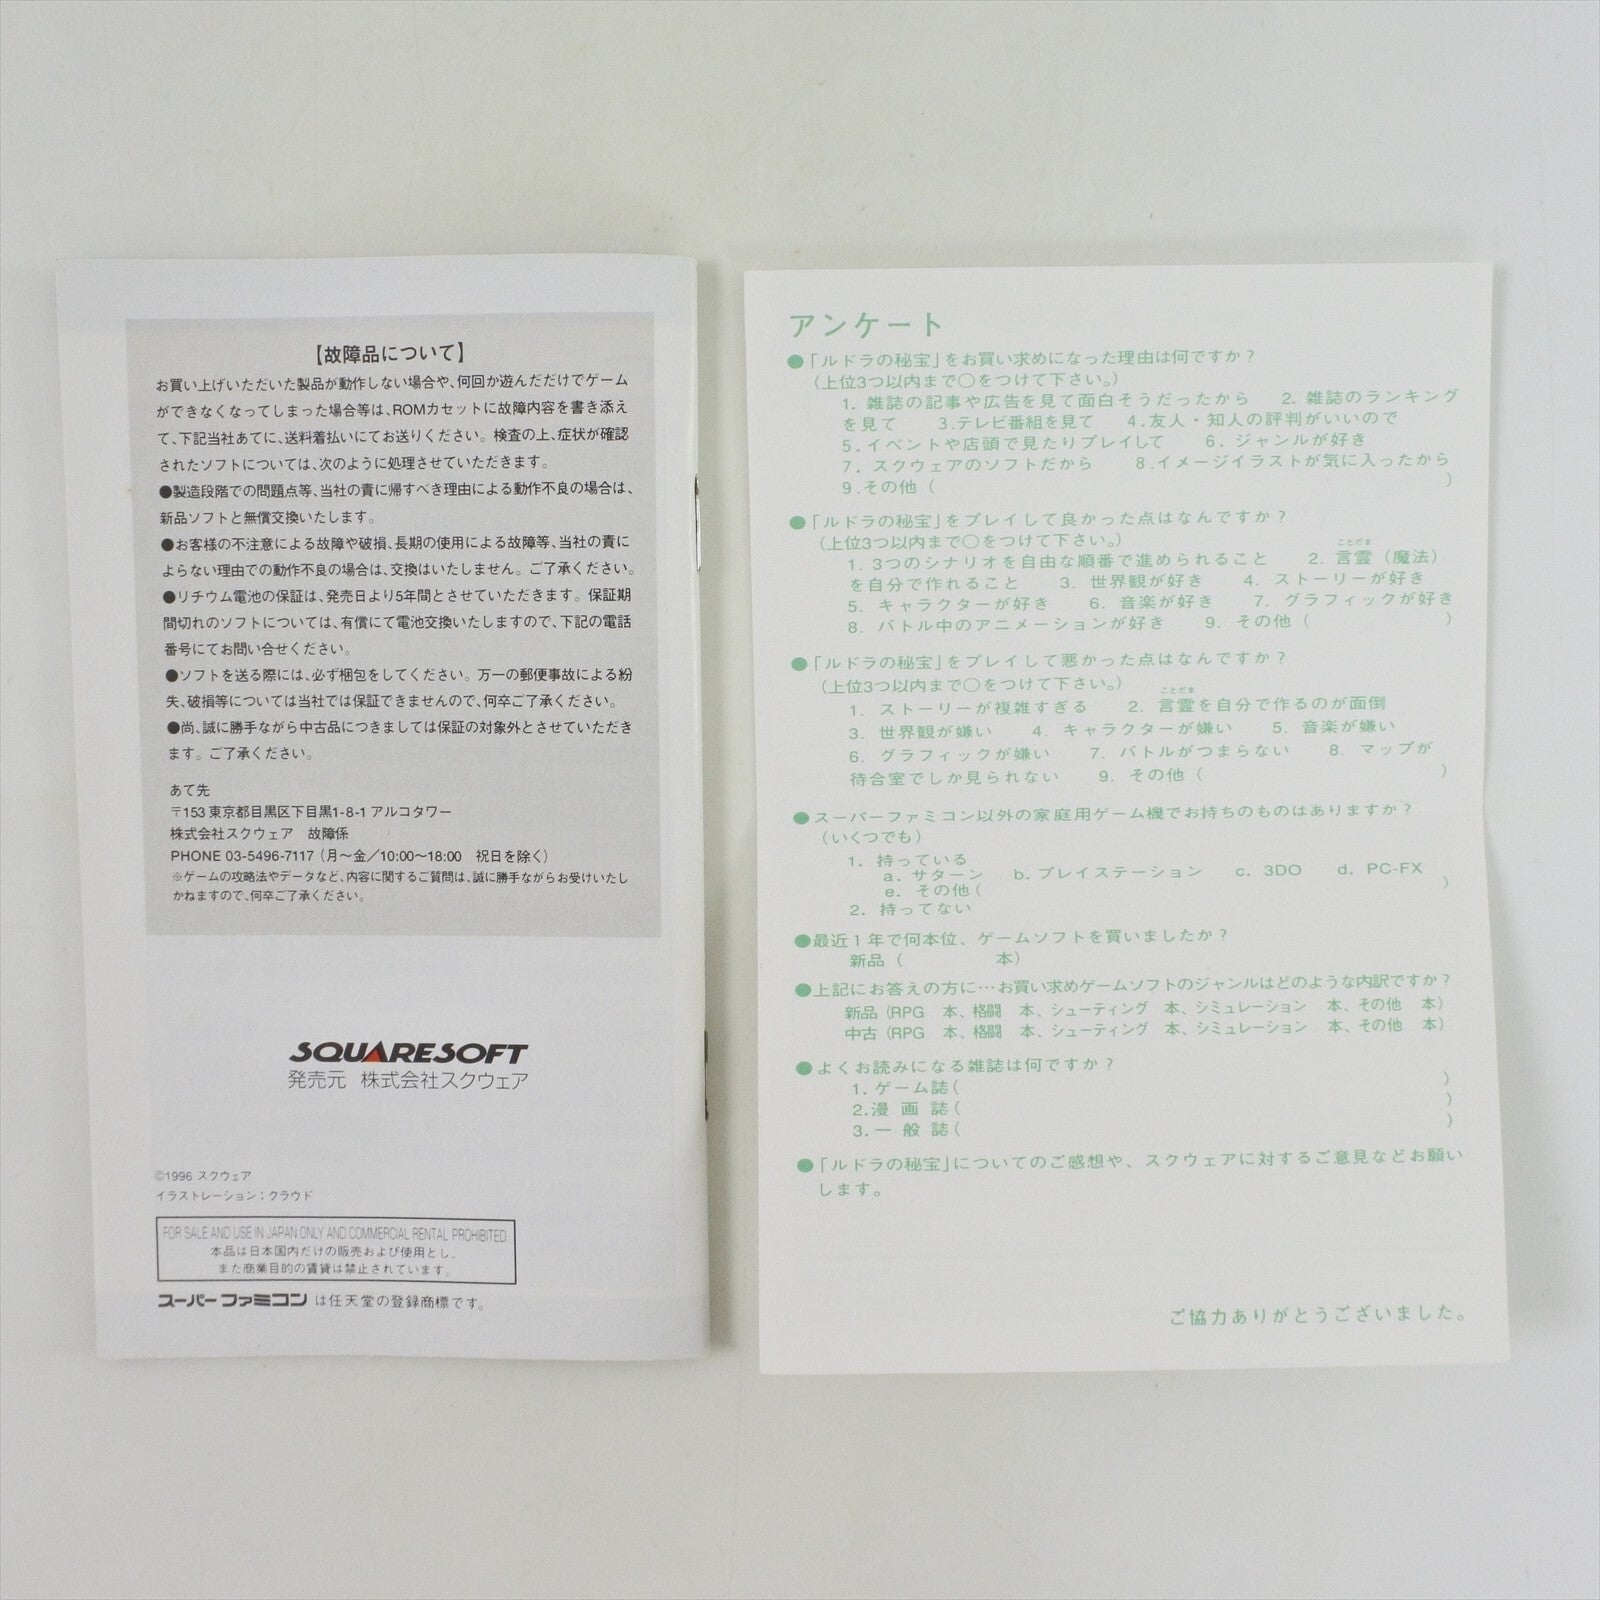 【故障品について】
お買い上げいただいた製品が動作しない場合や、何回か遊んだだけでゲーム
ができなくなってしまった場合等は、ROMカセットに故障内容を書き添え
て、下記当社あてに、送料着払いにてお送りください。検査の上、症状が確認
されたソフトについては、次のように処理させていただきます。
●製造段階での問題点等、当社の責に帰すべき理由による動作不良の場合は、
新品ソフトと無償交換いたします。
●お客様の不注意による故障や破損、長期の使用による故障等、当社の責に
よらない理由での動作不良の場合は、交換はいたしません。ご了承ください。
●リチウム電池の保証は、発売日より5年間とさせていただきます。保証期
間切れのソフトについては、有償にて電池交換いたしますので、下記の電話
番号にてお問い合せください。
●ソフトを送る際には、必ず梱包をしてください。万一の郵便事故による紛
失、破損等については当社では保証できませんので、何卒ご了承ください。
●尚、誠に勝手ながら中古品につきましては保証の対象外とさせていただき
ます。ご了承ください。
あて先
〒153 東京都目黒区下目黒1-8-1 アルコタワー
株式会社スクウェア 故障係
PHONE 03-5496-7117（月〜金／10:00〜18:00 祝日を除く）
※ゲームの攻略法やデータなど、内容に関するご質問は、誠に勝手ながらお受けいたし
かねますので、何卒ご了承ください。
SQUARESOFT
発売元 株式会社スクウェア
©1996 スクウェア
イラストレーション：クラウド
FOR SALE AND USE IN JAPAN ONLY AND COMMERCIAL RENTAL PROHIBITED.
本品は日本国内だけの販売および使用とし、
また商業目的の賃貸は禁止されています。
スーパーファミコン は任天堂の登録商標です。
アンケート
●「ルドラの秘宝」をお買い求めになった理由は何ですか？
（上位3つ以内まで○をつけて下さい。）
1. 雑誌の記事や広告を見て面白そうだったから 2. 雑誌のランキング
を見て 3.テレビ番組を見て 4.友人・知人の評判がいいので
5.イベントや店頭で見たりプレイして 6. ジャンルが好き
7. スクウェアのソフトだから 8.イメージイラストが気に入ったから
9.その他（ ）
●「ルドラの秘宝」をプレイして良かった点はなんですか？
（上位3つ以内まで○をつけて下さい。）
ことだま
1. 3つのシナリオを自由な順番で進められること 2. 言霊（魔法）
を自分で作れること 3. 世界観が好き 4. ストーリーが好き
5. キャラクターが好き 6. 音楽が好き 7. グラフィックが好き
8. バトル中のアニメーションが好き 9. その他（ ）
●「ルドラの秘宝」をプレイして悪かった点はなんですか？
（上位3つ以内まで○をつけて下さい。）
ことだま
1. ストーリーが複雑すぎる 2. 言霊を自分で作るのが面倒
3. 世界観が嫌い 4. キャラクターが嫌い 5. 音楽が嫌い
6. グラフィックが嫌い 7. バトルがつまらない 8. マップが
待合室でしか見られない 9. その他（ ）
●スーパーファミコン以外の家庭用ゲーム機でお持ちのものはありますか？
（いくつでも）
1. 持っている
a. サターン b. プレイステーション c. 3DO d. PC-FX
e. その他（ ）
2. 持ってない
●最近1年で何本位、ゲームソフトを買いましたか？
新品（ 本）
●上記にお答えの方に…お買い求めゲームソフトのジャンルはどのような内訳ですか？
新品（RPG 本、格闘 本、シューティング 本、シミュレーション 本、その他 本）
中古（RPG 本、格闘 本、シューティング 本、シミュレーション 本、その他 本）
●よくお読みになる雑誌は何ですか？
1. ゲーム誌（ ）
2.漫 画 誌（ ）
3.一 般 誌（ ）
●「ルドラの秘宝」についてのご感想や、スクウェアに対するご意見などお願い
します。
ご協力ありがとうございました。